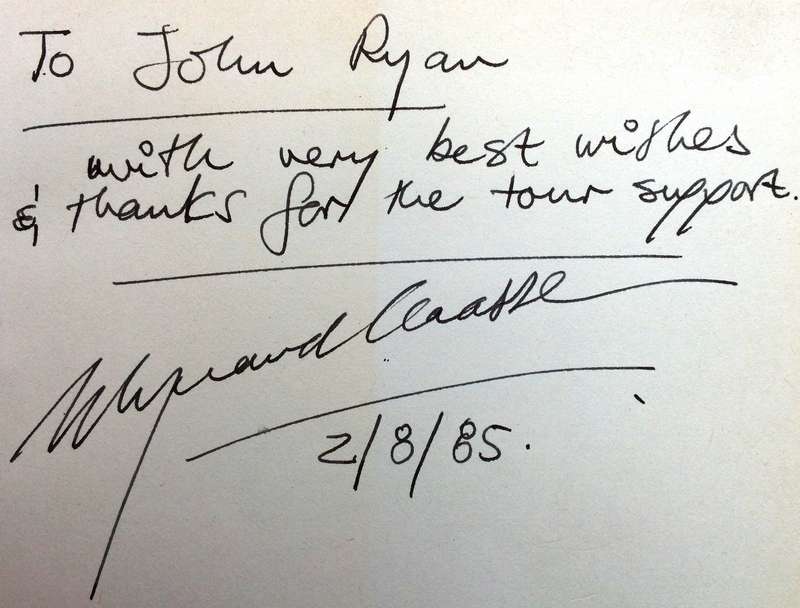 To John Ryan
with very best wishes
& thanks for the tour support.
Wynand Claassen
2/8/85.